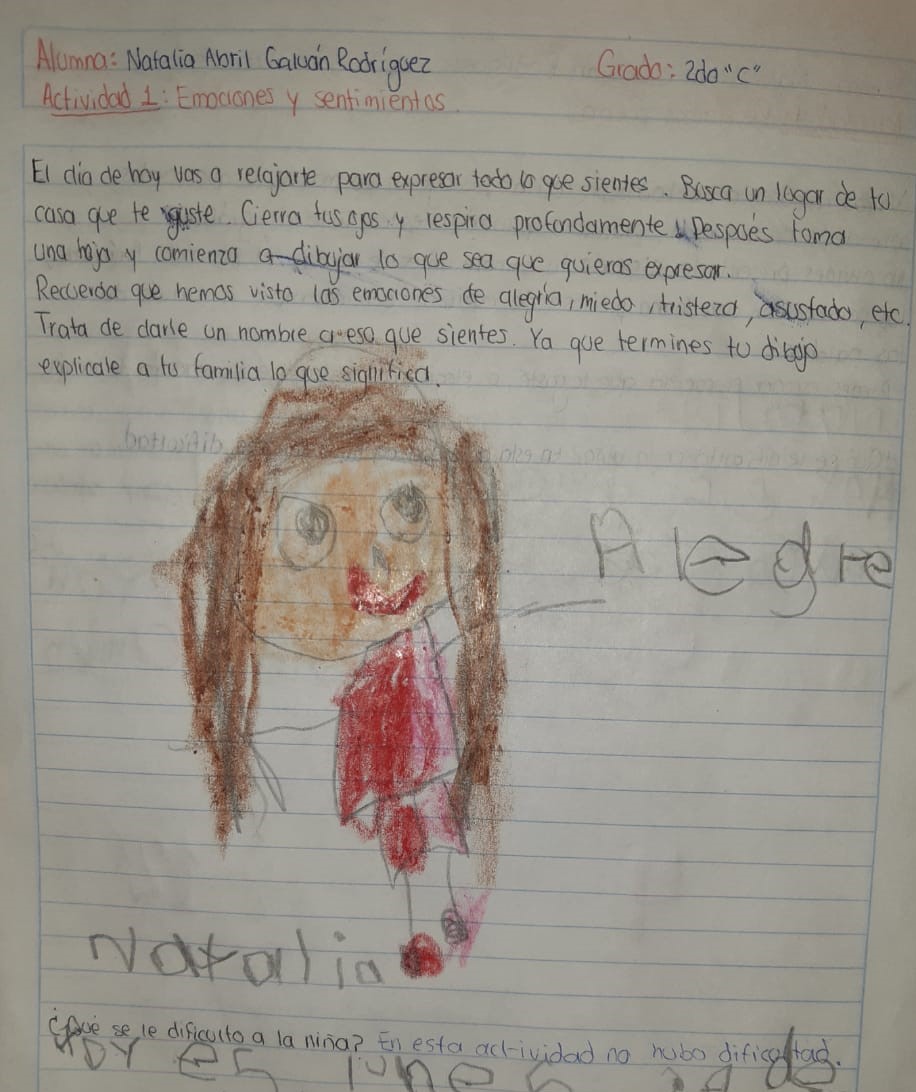 Alumna: Natalia Abril Galván Rodríguez Grado: 2do "C"
Actividad 1: Emociones y sentimientos
El día de hoy vas a relajarte para expresar todo lo que sientes. Busca un lugar de tu
casa que te guste. Cierra tus ojos y respira profundamente. Después toma
una hoja y comienza a dibujar lo que sea que quieras expresar.
Recuerda que hemos visto las emociones de alegría, miedo, tristeza, asustado, etc.
Trata de darle un nombre a eso que sientes. Ya que termines tu dibujo
explicale a tu familia lo que significa.
Alegre
Natalia
¿Qué se le dificulto a la niña? En esta actividad no hubo dificultad.
HOY es lunes